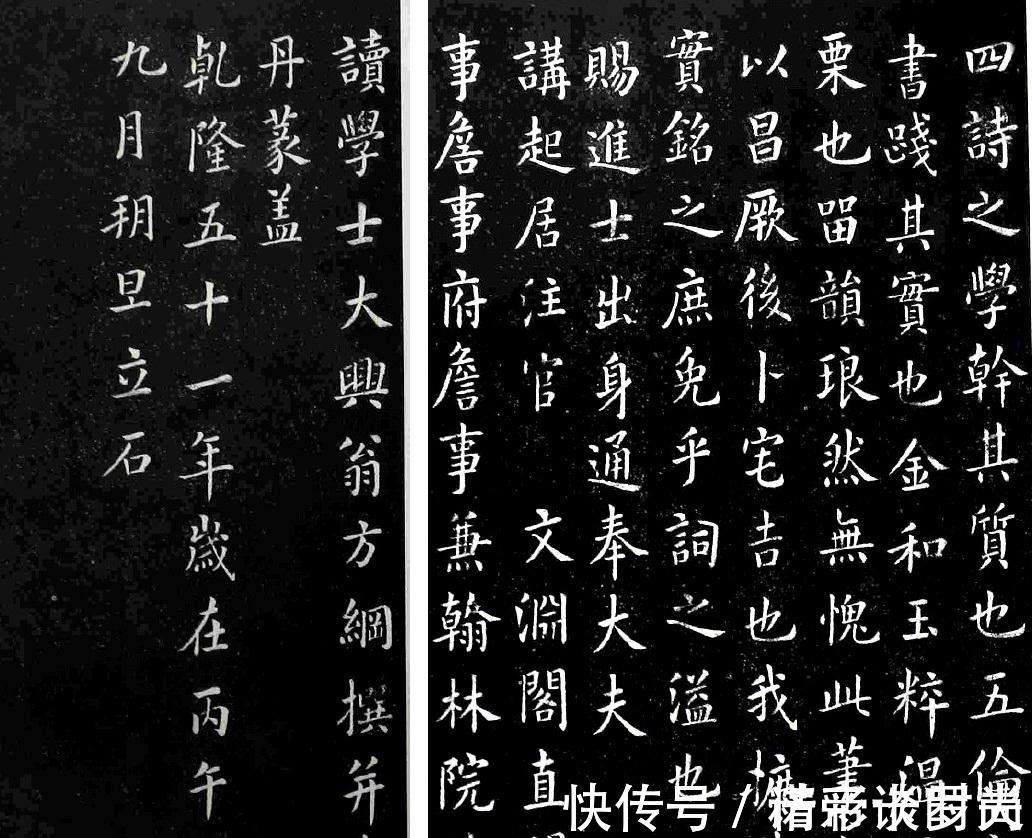 四詩之學幹其質也五倫
書踐其實也金和玉粹温
栗也畱韻琅然無愧此
以昌厥後卜宅吉也我
實銘之庶免乎詞之溢也
賜進士出身通奉大夫
講起居注官 文淵閣直
事詹事府詹事兼翰林院
讀學士大興翁方綱撰并
丹篆盖
乹隆五十一年歲在丙午
九月朔旦立石
快传号 /